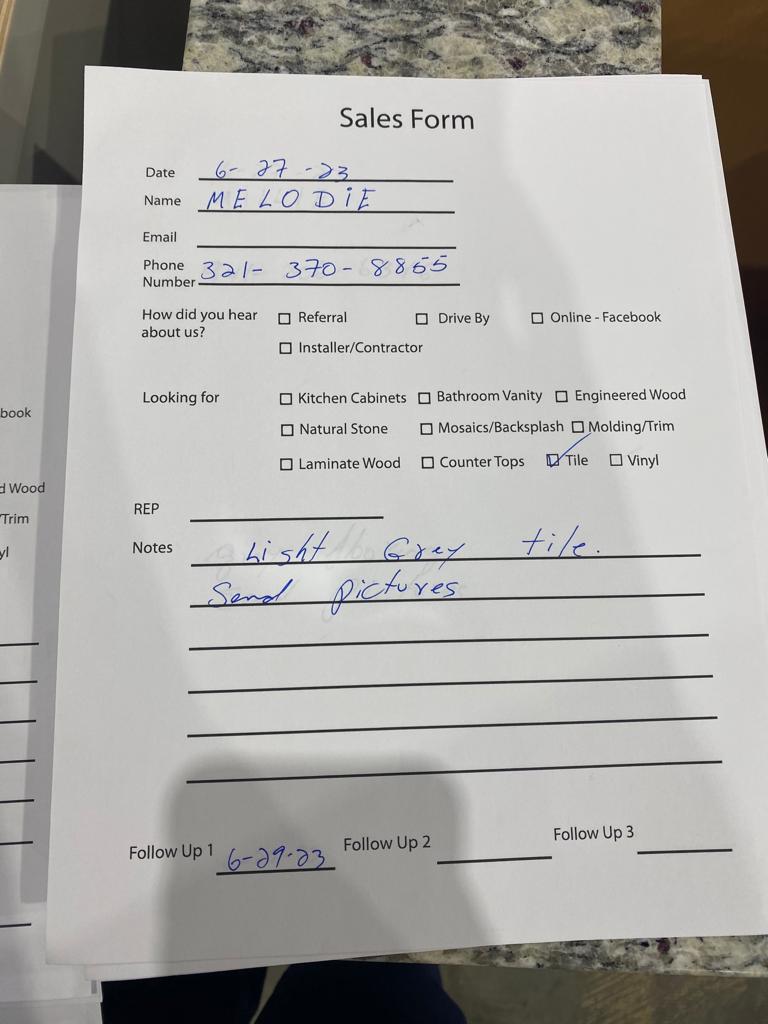 Sales Form
Date 6-27-23
Name MELODiE
Email
Phone Number 321-370-8855
How did you hear about us?
☐ Referral ☐ Drive By ☐ Online - Facebook
☐ Installer/Contractor
Looking for
☐ Kitchen Cabinets ☐ Bathroom Vanity ☐ Engineered Wood
☐ Natural Stone ☐ Mosaics/Backsplash ☐ Molding/Trim
☐ Laminate Wood ☐ Counter Tops ☑ Tile ☐ Vinyl
REP
Notes Light Grey tile.
Send pictures
Follow Up 1 6-29-23 Follow Up 2 Follow Up 3
book
d Wood
/Trim
yl